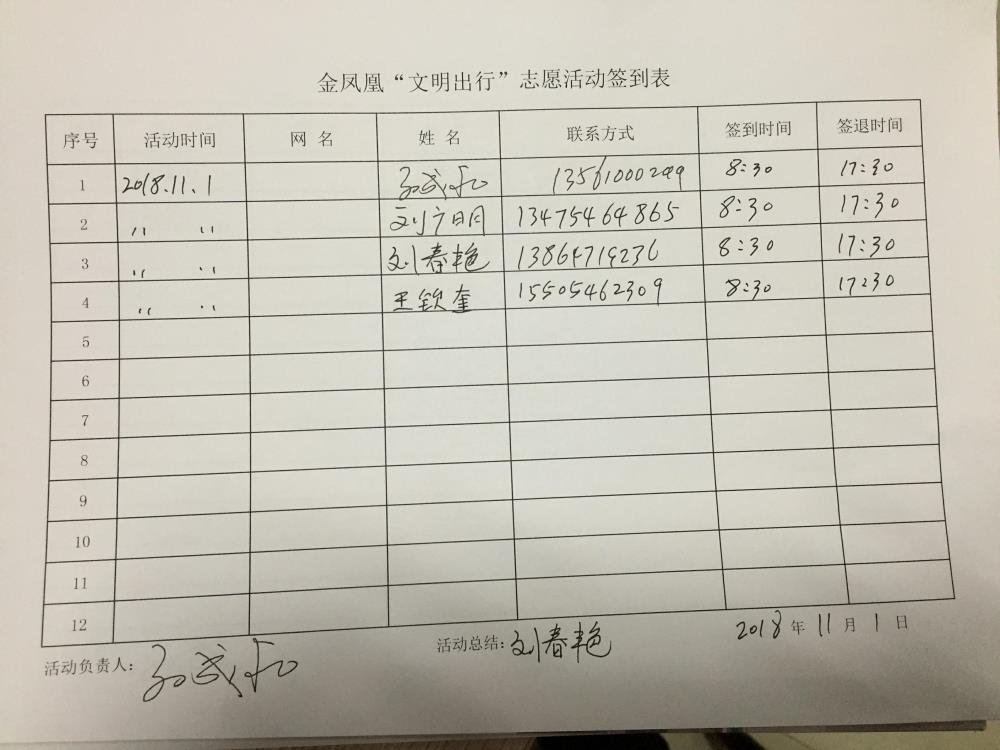 金凤凰“文明出行”志愿活动签到表
序号 活动时间 网 名 姓 名 联系方式 签到时间 签退时间
1 2018.11.1 孙武和 13561000299 8:30 17:30
2 〃 〃 刘广明 13475464865 8:30 17:30
3 〃 〃 刘春艳 13864719236 8:30 17:30
4 〃 〃 王钦奎 15505462309 8:30 17:30
5
6
7
8
9
10
11
12
活动负责人: 孙武和 活动总结: 刘春艳 2018 年 11 月 1 日